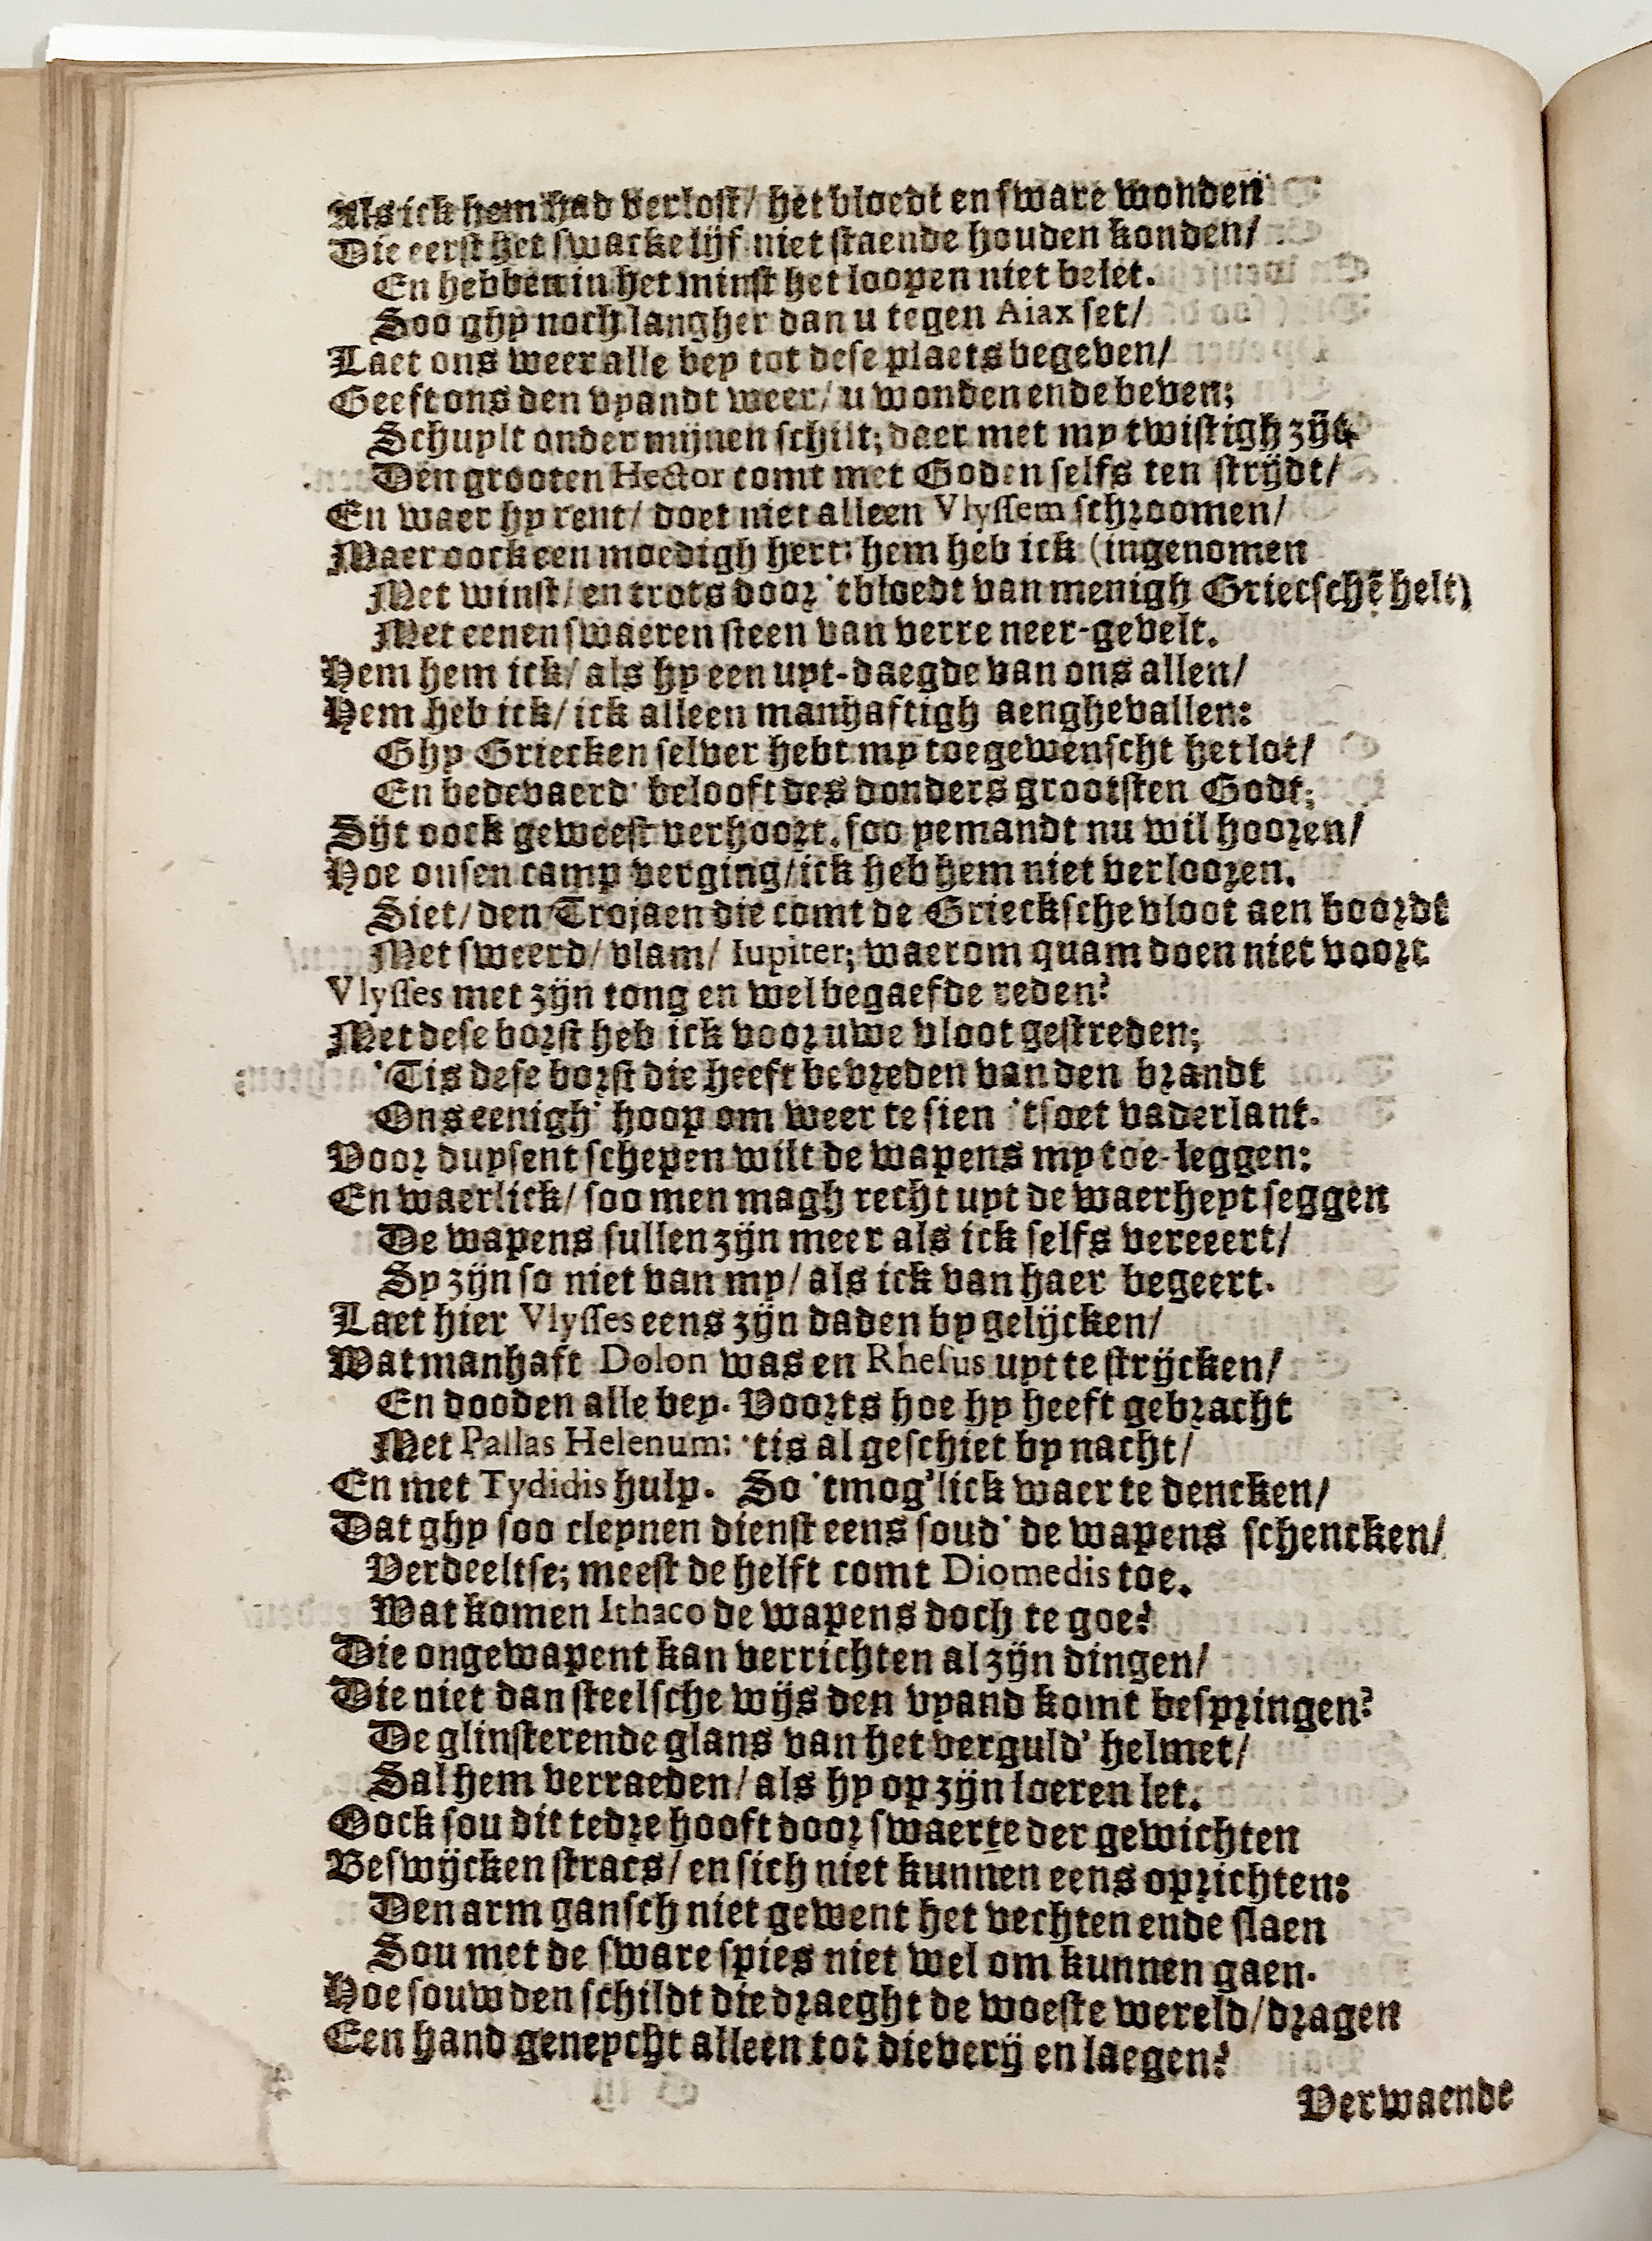 Als ick hem had verlost/ het bloedt en sware wonden
Die eerst het swacke lijf niet staende houden konden/
En hebben in het minst het loopen niet belet.
Soo ghy noch langher dan u tegen Aiax set/
Laet ons weer alle bey tot dese plaets begeven/
Geeft ons den vyandt weer/ u wonden ende beven;
Schuylt onder mijnen schilt; daer met my twistigh zijt,
Den grooten Hector comt met Goden selfs ten strijdt/
En waer hy rent/ doet niet alleen Vlyssem schroomen/
Maer oock een moedigh hert: hem heb ick (ingenomen
Met winst/ en trots door 'tbloedt van menigh Griecschē helt)
Met eenen swaeren steen van verre neer-gevelt.
Hem hem ick/ als hy een uyt-daegde van ons allen/
Hem heb ick/ ick alleen manhaftigh aenghevallen:
Ghy Griecken selver hebt my toegewenscht het lot/
En bedevaerd' belooft des donders grootsten Godt;
Sijt oock geweest verhoort. soo yemandt nu wil hooren/
Hoe onsen camp verging/ ick heb hem niet verlooren.
Siet/ den Trojaen die comt de Griecksche vloot aen boordt
Met sweerd/ vlam/ Iupiter; waerom quam doen niet voort
Vlysses met zijn tong en wel begaefde reden?
Met dese borst heb ick voor uwe vloot gestreden;
'Tis dese borst die heeft bevreden van den brandt
Ons eenigh' hoop om weer te sien 'tsoet vaderlant.
Voor duysent schepen wilt de wapens my toe-leggen:
En waerlick/ soo men magh recht uyt de waerheyt seggen
De wapens sullen zijn meer als ick selfs vereeert/
Sy zijn so niet van my/ als ick van haer begeert.
Laet hier Vlysses eens zijn daden by gelijcken/
Wat manhaft Dolon was en Rhesus uyt te strijcken/
En dooden alle bey. Voorts hoe hy heeft gebracht
Met Pallas Helenum: 'tis al geschiet by nacht/
En met Tydidis hulp. So 'tmog'lick waer te dencken/
Dat ghy soo cleynen dienst eens soud' de wapens schencken/
Verdeeltse; meest de helft comt Diomedis toe.
Wat komen Ithaco de wapens doch te goe?
Die ongewapent kan verrichten al zijn dingen/
Die niet dan steelsche wijs den vyand komt bespringen?
De glinsterende glans van het verguld' helmet/
Sal hem verraeden/ als hy op zijn loeren let.
Oock sou dit tedre hooft door swaerte der gewichten
Beswijcken stracs/ en sich niet kunnen eens oprichten:
Den arm gansch niet gewent het vechten ende slaen
Sou met de sware spies niet wel om kunnen gaen.
Hoe souw den schildt die draeght de woeste wereld/ dragen
Een hand geneycht alleen tot dieverij en laegen?
Verwaende